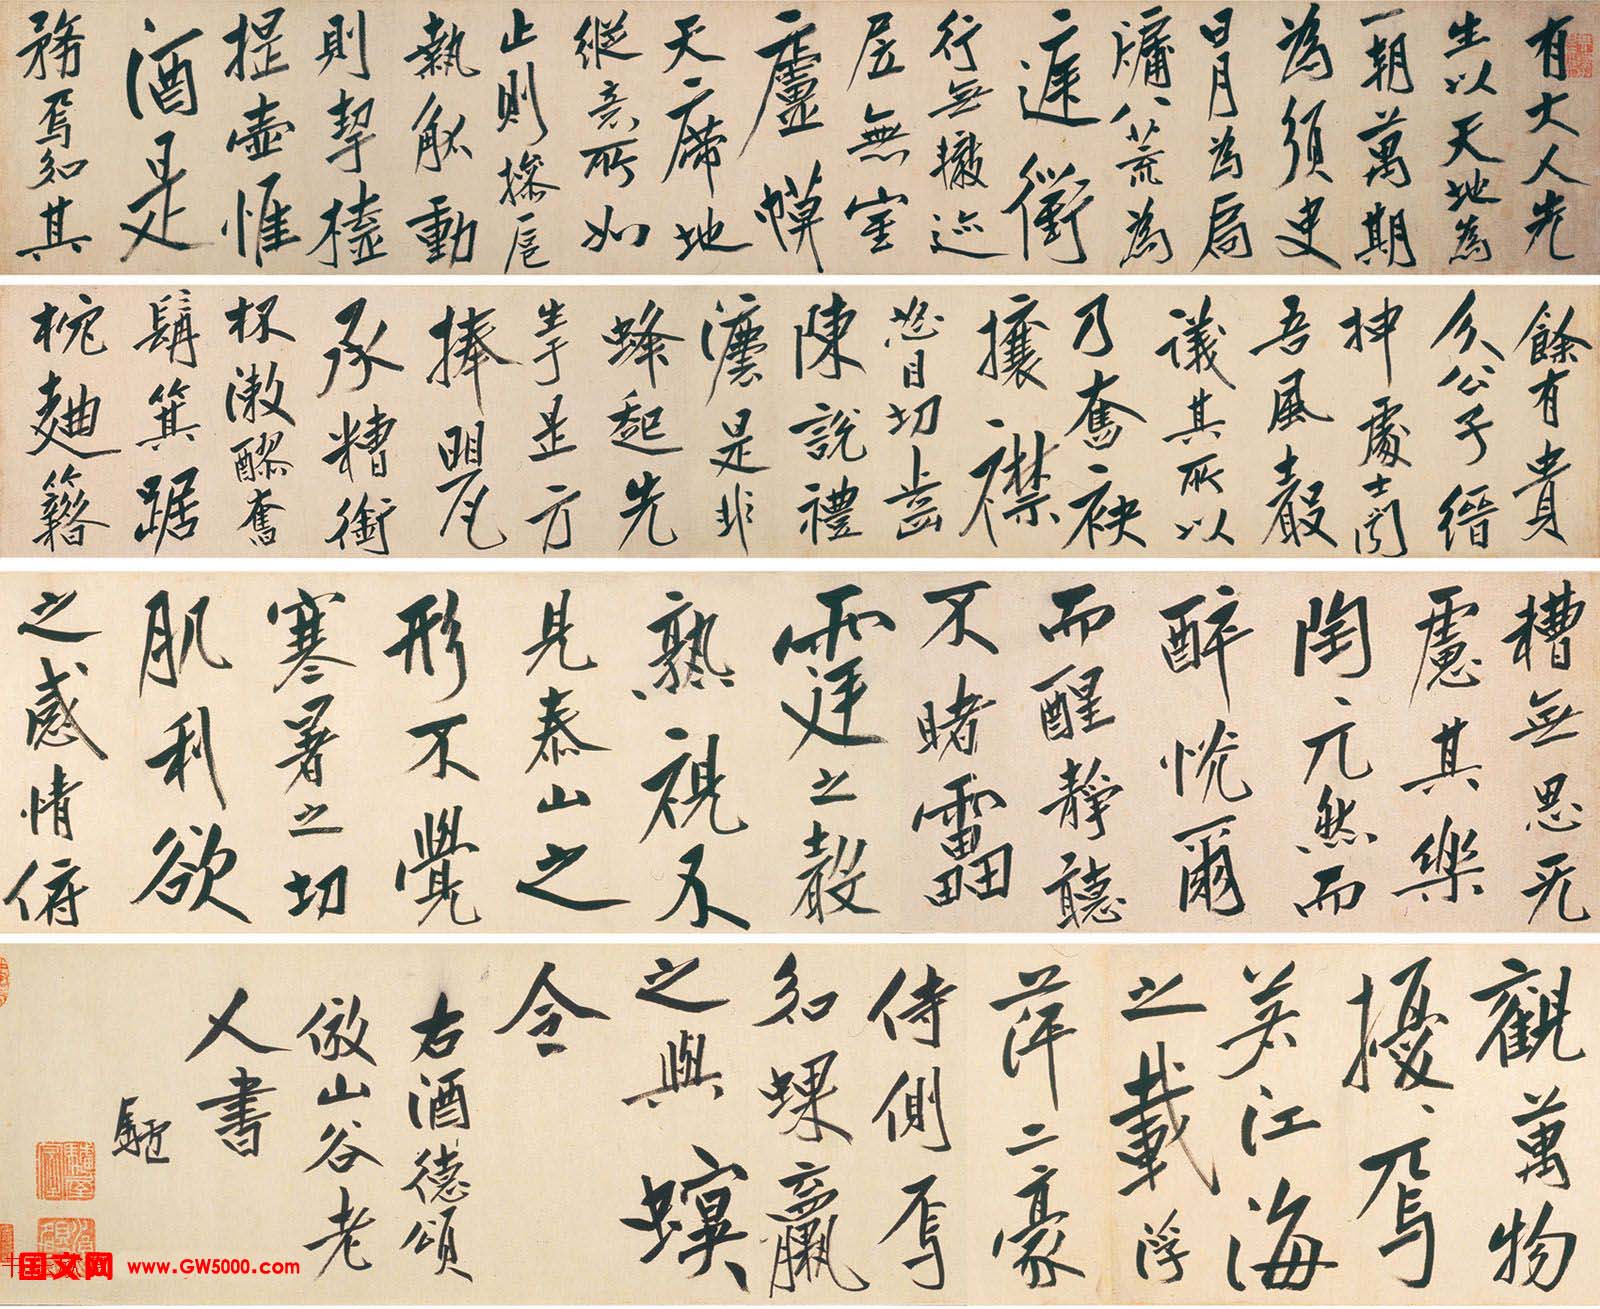 有大人先
生以天地為
一朝萬期
為須臾
日月為扃
牖八荒為
庭衢
行無轍迹
居無室
廬幙
天席地
縱意所如
止則操卮
執觚動
則挈榼
提壺惟
酒是
務焉知其
餘有貴
介公子縉
紳處士聞
吾風聲
議其所以
乃奮袂
攘襟
怒目切齒
陳說禮
灋是非
蜂起先
生于是方
捧罌
承糟銜
杯漱醪奮
髯箕踞
枕麴籍
糟無思无
慮其樂
陶〻兀然而
醉恍爾
而醒靜聽
不睹靁
霆之聲
熟視不
見泰山之
形不覺
寒暑之切
肌利欲
之感情俯
觀萬物
擾〻焉
若江海
之載浮
萍二豪
侍側焉
知蜾蠃
之與螟
令
右酒德頌
倣山谷老
人書
国文网 www.GW5000.com